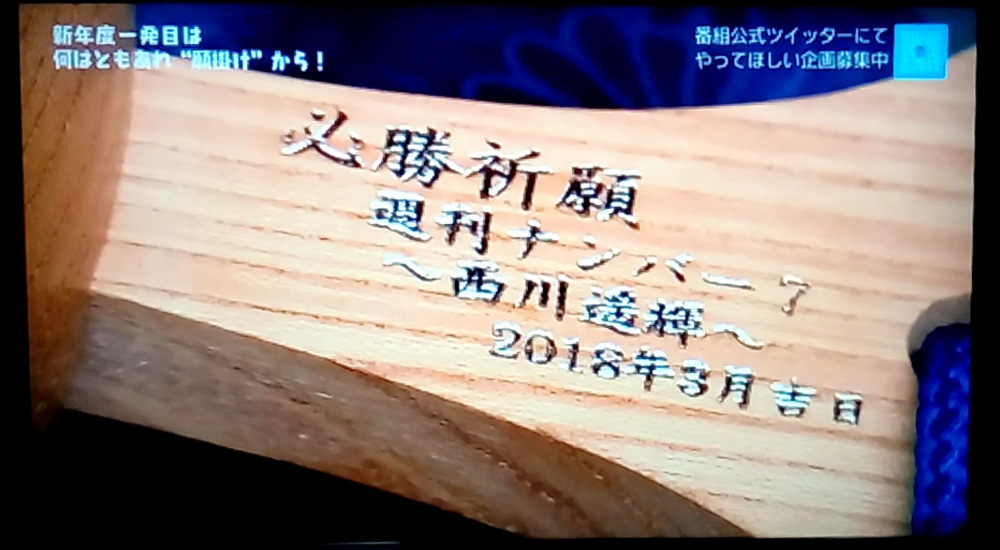 新年度一発目は
何はともあれ“願掛け”から！
番組公式ツイッターにて
やってほしい企画募集中
必勝祈願
週刊ナンバー7
～西川遥輝～
2018年3月吉日